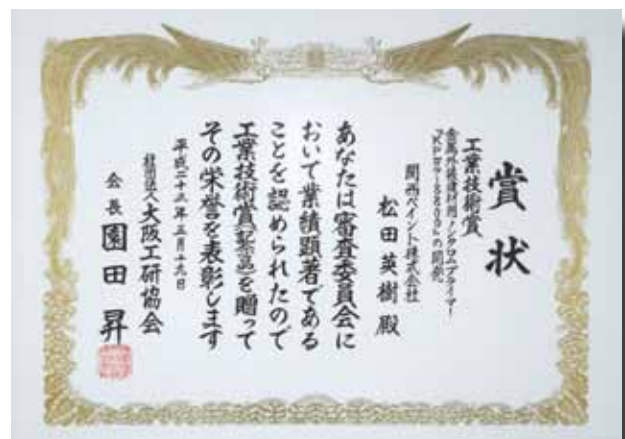 賞状
工業技術賞
金属外装建材用ノンクロムプライマー
の開発
関西ペイント株式会社
松田英樹殿
あなたは審査委員会に
おいて業績顕著である
ことを認められたので
工業技術賞を贈って
その栄誉を表彰します
平成二十三年五月十九日
社団法人大阪工研協会
会長園田昇